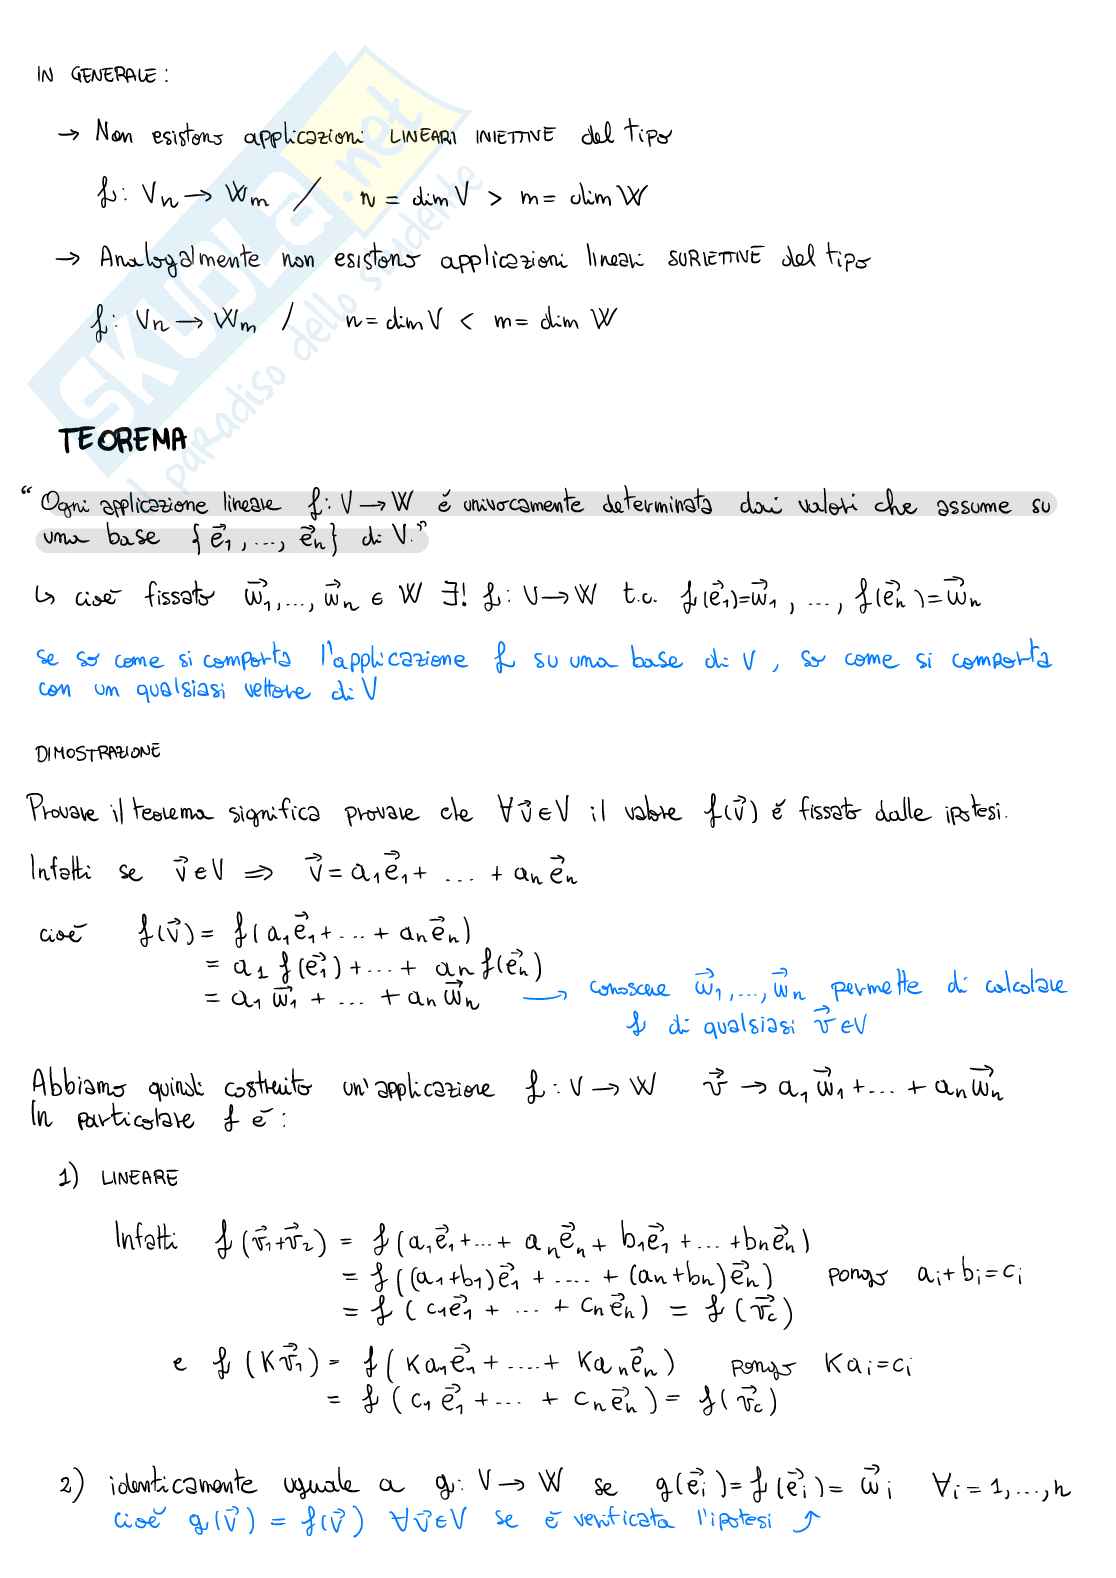 IN GENERALE:
→ Non esistono applicazioni LINEARI INIETTIVE del tipo
f: Vn → Wm / n = dim V > m = dim W
→ Analogalmente non esistono applicazioni lineari SURIETTIVE del tipo
f: Vn → Wm / n = dim V < m = dim W
SKUOLA.net
il paradiso dello studente
TEOREMA
“Ogni applicazione lineare f: V → W é univocamente determinata dai valori che assume su
una base {e⃗1, ..., e⃗n} di V.”
↳ cioè fissato w⃗1, ..., w⃗n ∈ W ∃! f: V → W t.c. f(e⃗1)=w⃗1, ..., f(e⃗n)=w⃗n
se so come si comporta l'applicazione f su una base di V, so come si comporta
con un qualsiasi vettore di V
DIMOSTRAZIONE
Provare il teorema significa provare che ∀v⃗∈V il valore f(v⃗) é fissato dalle ipotesi.
Infatti se v⃗∈V ⇒ v⃗ = a1e⃗1 + ... + ane⃗n
cioè f(v⃗) = f(a1e⃗1 + ... + ane⃗n)
= a1 f(e⃗1) + ... + an f(e⃗n)
= a1 w⃗1 + ... + an w⃗n → conoscere w⃗1, ..., w⃗n permette di calcolare
f di qualsiasi v⃗∈V
Abbiamo quindi costruito un'applicazione f: V → W v⃗ → a1w⃗1 + ... + anw⃗n
In particolare f è:
1) LINEARE
Infatti f(v⃗1+v⃗2) = f(a1e⃗1 + ... + ane⃗n + b1e⃗1 + ... + bne⃗n)
= f((a1+b1)e⃗1 + .... + (an+bn)e⃗n) pongo ai+bi=ci
= f(c1e⃗1 + ... + cne⃗n) = f(v⃗c)
e f(Kv⃗1) = f(Ka1e⃗1 + .... + Kane⃗n) pongo Kai=ci
= f(c1e⃗1 + ... + cne⃗n) = f(v⃗c)
2) identicamente uguale a g: V → W se g(e⃗i)=f(e⃗i)=w⃗i ∀i=1,...,n
cioè g(v⃗) = f(v⃗) ∀v⃗∈V se è verificata l'ipotesi ⤴